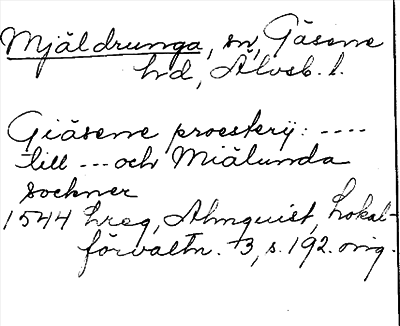 Mjäldrunga, sn, Gäsene
hd, Älvsb. l.
Giäsene proesterij: ----
till --- och Miälunda
sockner
1544 hreg, Almquist, Lokal-
förvaltn. 3, s. 192. orig.